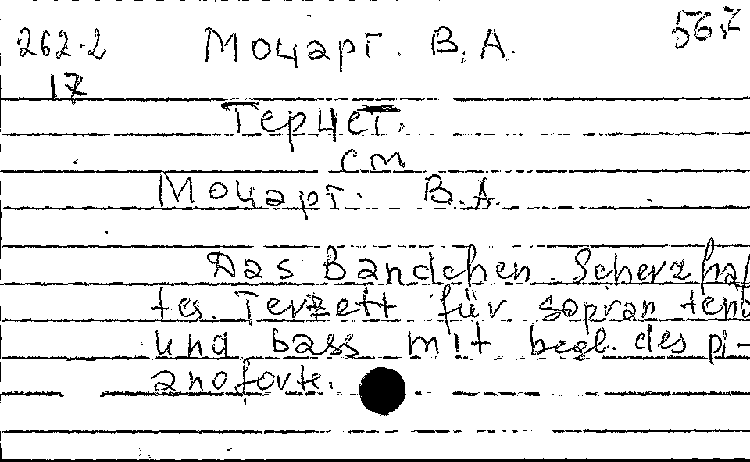 262.2 Моцарт. В.А. 567
17
Терцет.
см
Моцарт. В.А.
Das Bändchen. Scherzhaf
tes. Terzett für sopran teno
und bass mit begl. des pi-
anoforte.